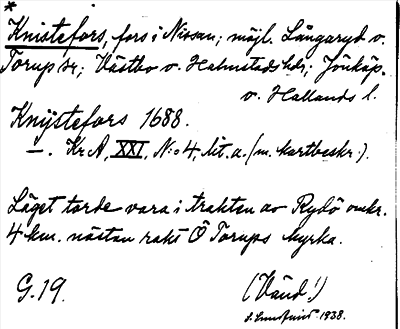 *
Knistefors, fors i Nissan; möjl. Långaryd o.
Torup sr; Västbo o. Halmstads hdr; Jönköp.
o. Hallands l.
Knijstefors 1688.
—. Kr A, XXI, N:o 4, lit. a. (m. kartbeskr.).
Läget torde vara i trakten av Rydö omkr.
4 km. nästan rakt Ö Torups kyrka.
G. 19.
(Vänd!)
S. Lundquist 1938.